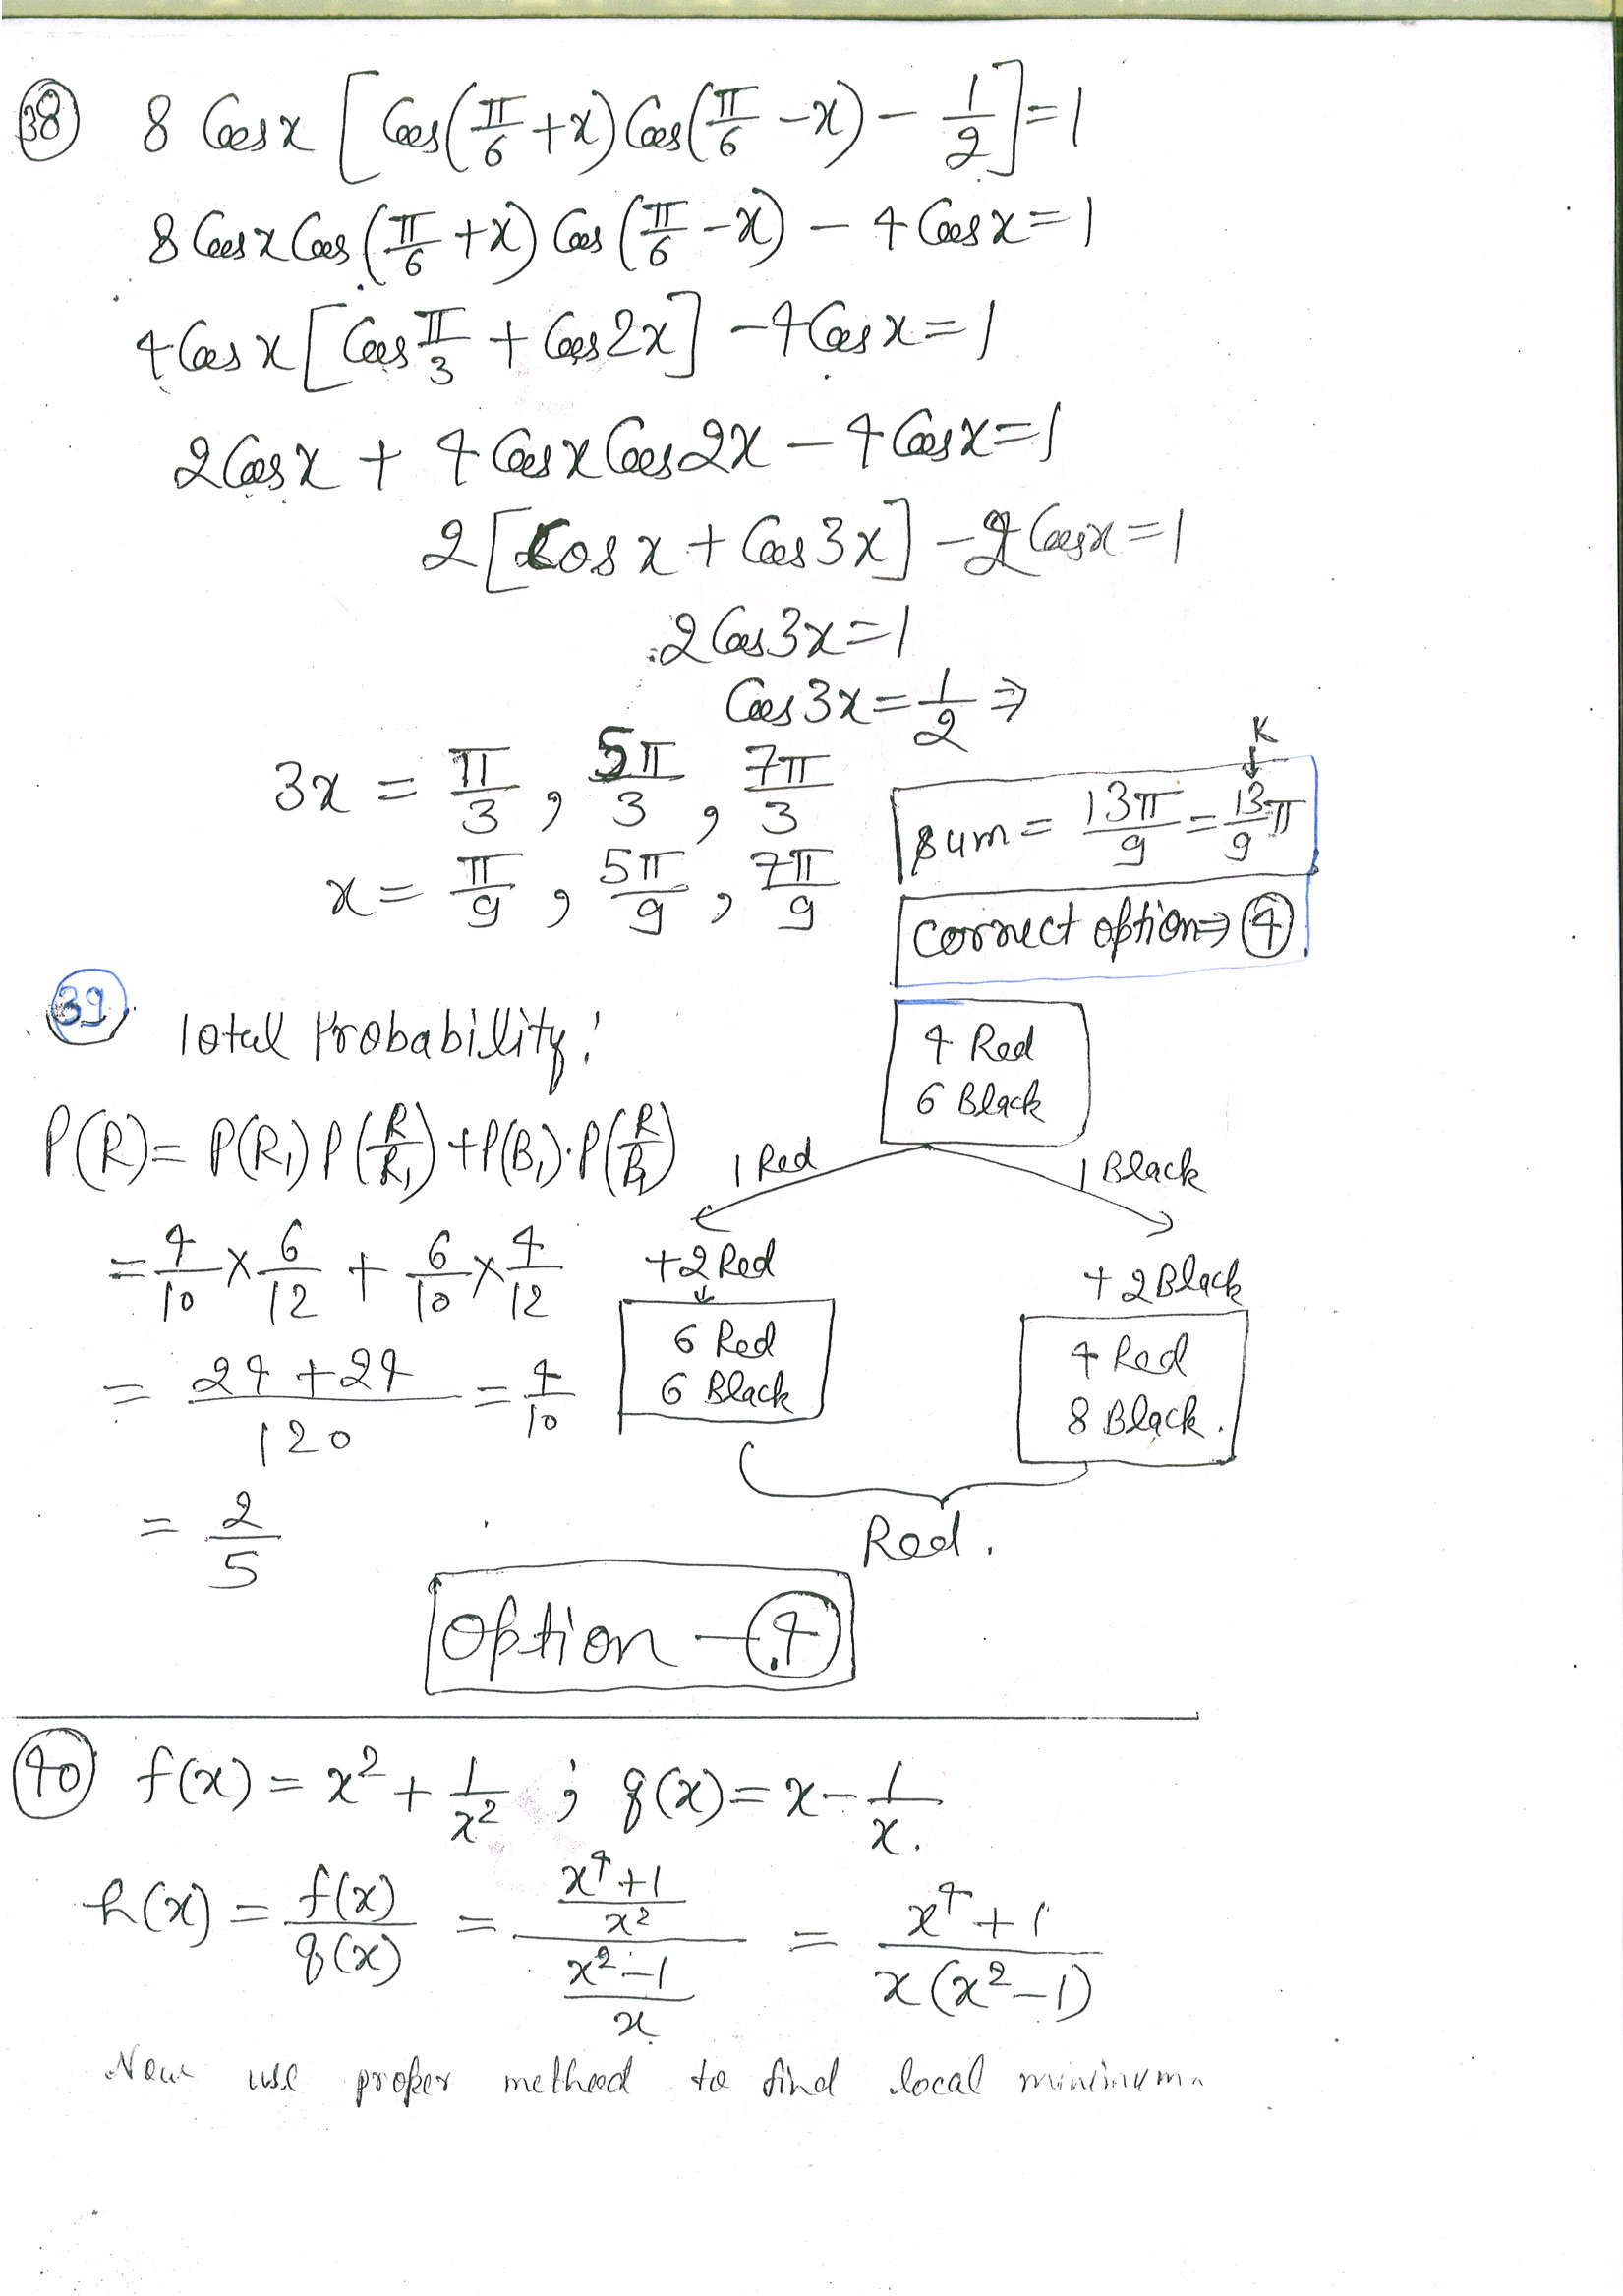 38 8 Cos x [Cos(π/6 + x) Cos(π/6 - x) - 1/2] = 1
8 Cos x Cos(π/6 + x) Cos(π/6 - x) - 4 Cos x = 1
4 Cos x [Cos π/3 + Cos 2x] - 4 Cos x = 1
2 Cos x + 4 Cos x Cos 2x - 4 Cos x = 1
2 [Cos x + Cos 3x] - 2 Cos x = 1
2 Cos 3x = 1
Cos 3x = 1/2 ⇒
3x = π/3, 5π/3, 7π/3
x = π/9, 5π/9, 7π/9
K
↓
sum = 13π/9 = 13/9 π
correct option ⇒ 4
39 Total Probability:
P(R) = P(R₁) P(R/R₁) + P(B₁)·P(R/B₁)
= 4/10 × 6/12 + 6/10 × 4/12
= (24 + 24)/120 = 4/10
= 2/5
4 Red
6 Black
1 Red
1 Black
+2 Red
↓
6 Red
6 Black
+2 Black
4 Red
8 Black.
Red.
Option - 4
40 f(x) = x² + 1/x² ; g(x) = x - 1/x.
h(x) = f(x)/g(x) = ((x⁴+1)/x²)/((x²-1)/x) = (x⁴+1)/(x(x²-1))
Now use proper method to find local minimum.